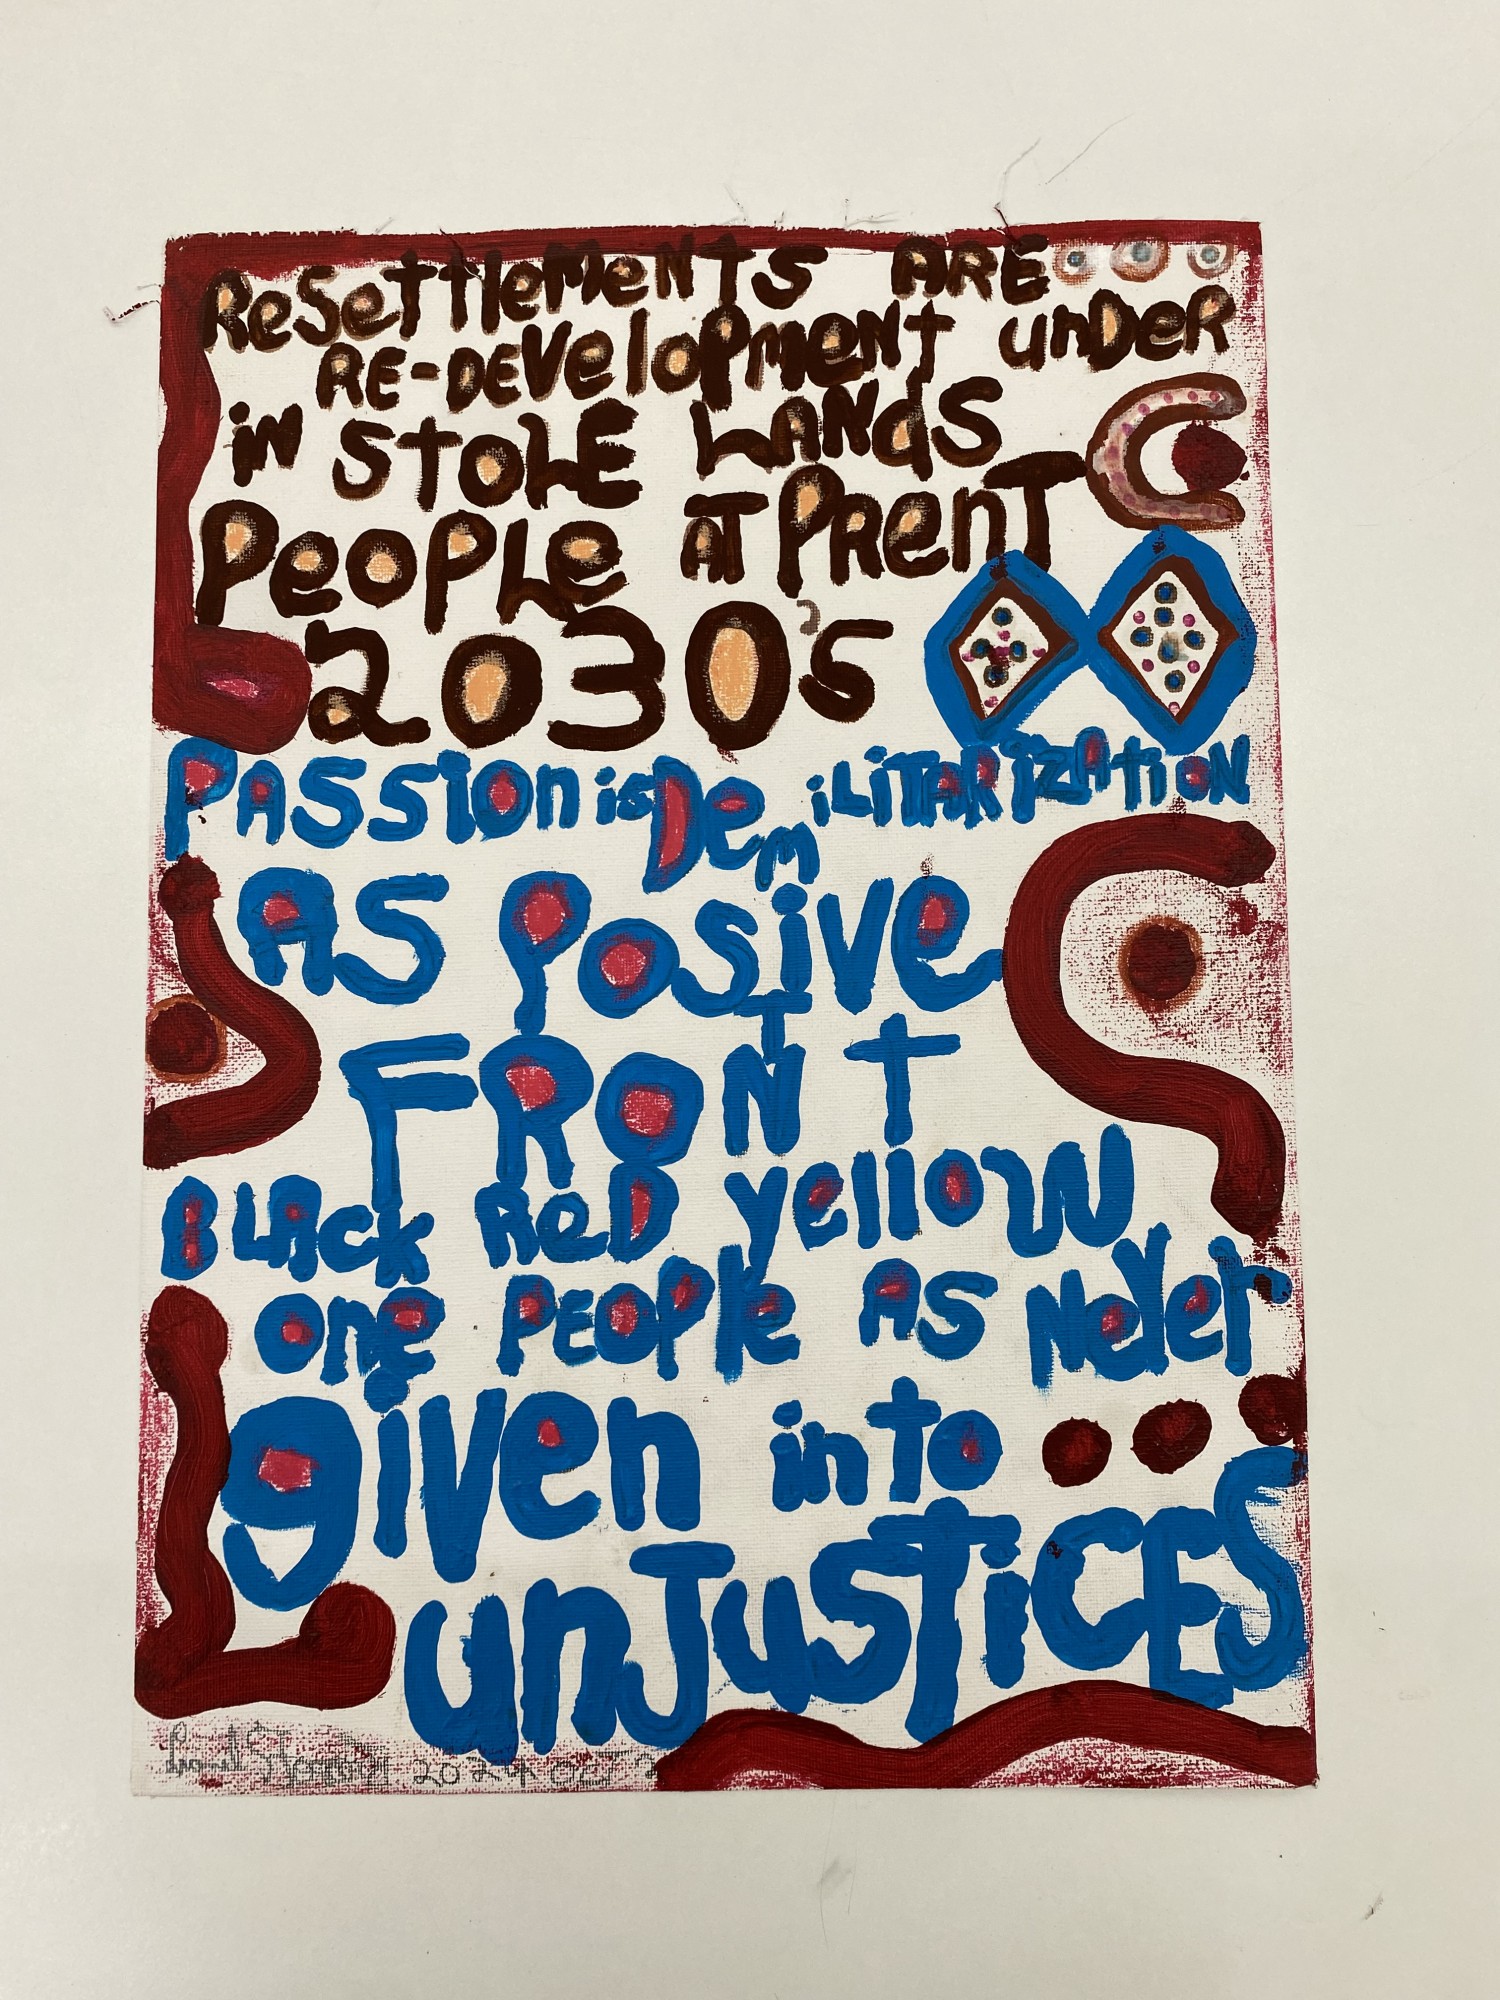 ReSettleMeNTS ARE
RE-DEVelOPmeNt unDeR
iN STOLE LANdS
PeOPLe AT PRenT
2030's
PASSION is DemiLiTARizAtiON
AS POSiTive
FRONT
BLAck ReD yellow
one PEOPle AS NeVer
given into
unJusTiCES
2024 OCT